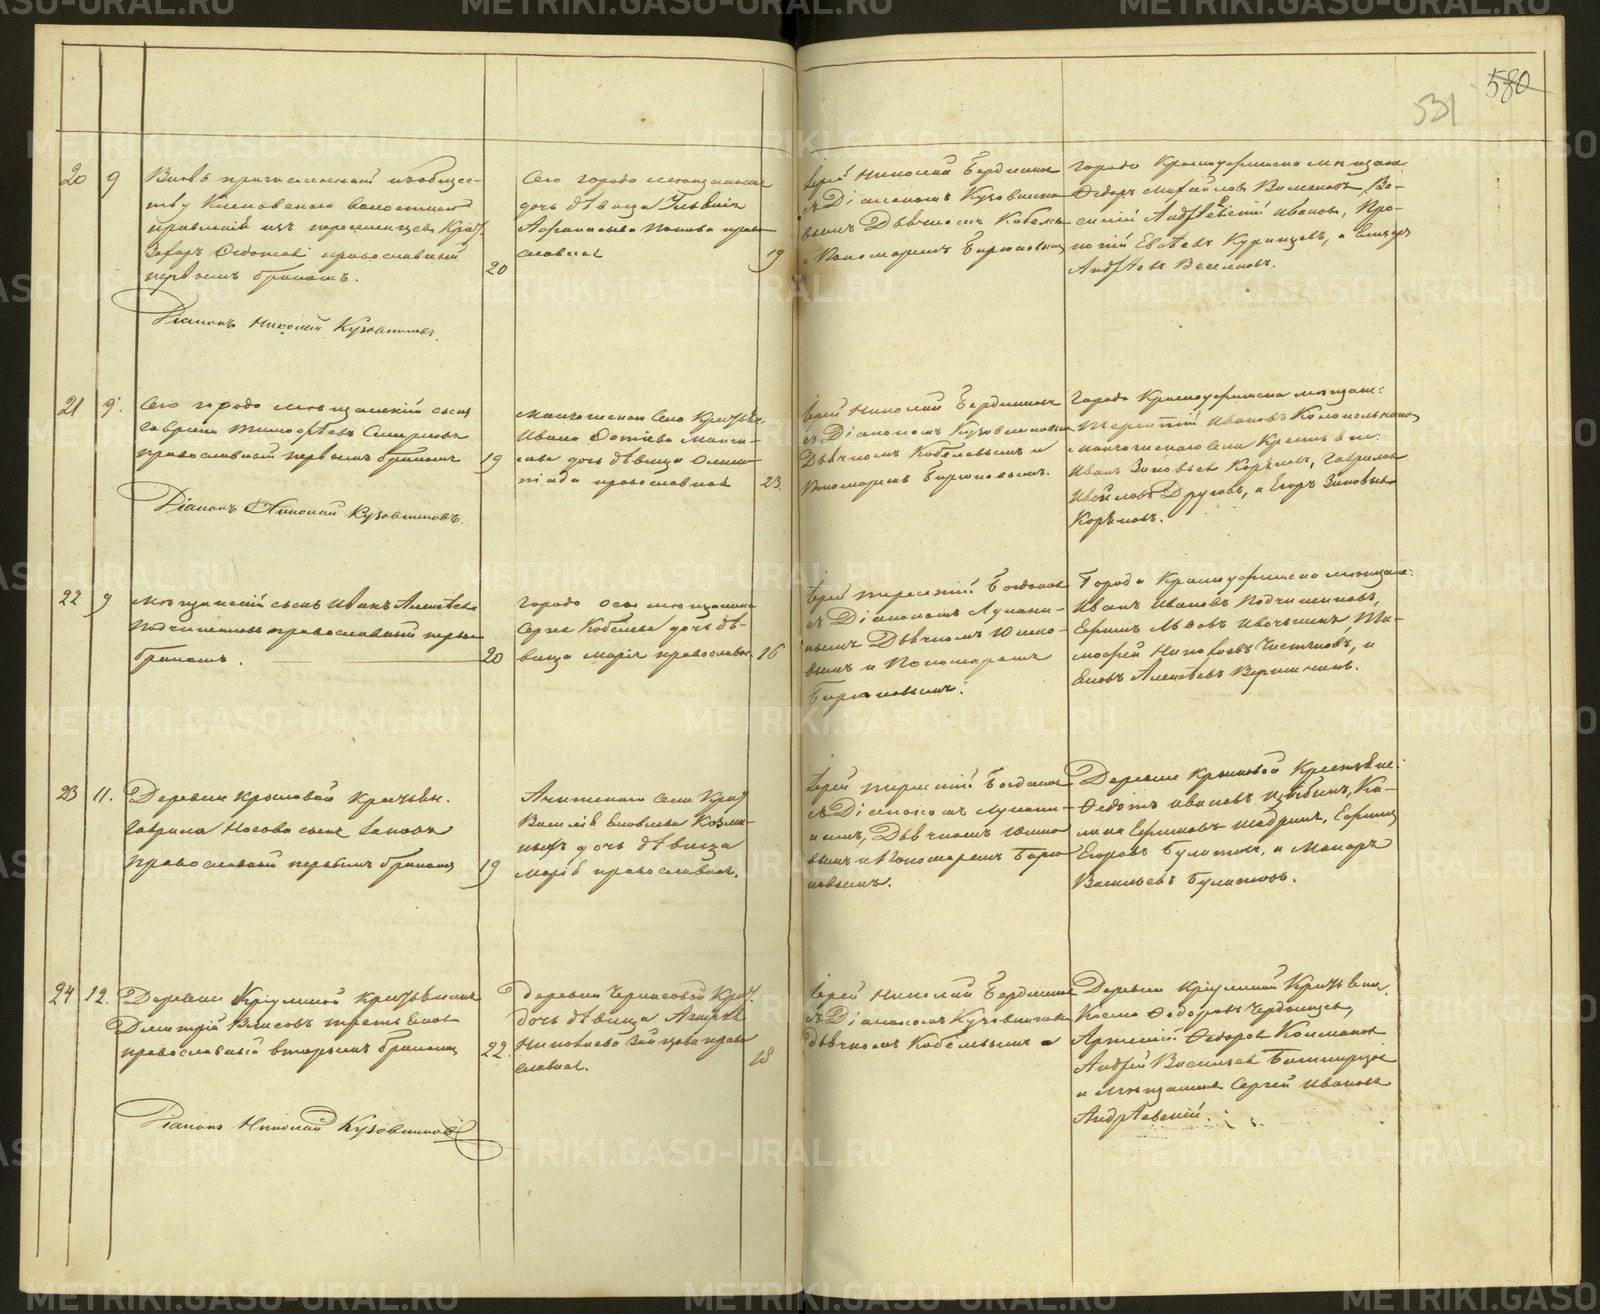 580
531
20
9
Вновь причисленный къ обще-
ству Кленовскаго волостнаго
правленія изъ переселенцевъ Крест.
Захаръ Ѳедотовъ православный
первымъ бракомъ.
20
Діаконъ Николай Кузовниковъ.
Сего города мѣщанина
дочь дѣвица
Аѳанасьева Попова право
славная
19
Іерей Николай Бердников
съ Діакономъ Кузовнико
вымъ Дьячкомъ Кобелев
и Пономаремъ Бирюковымъ
города Красноуфимска мѣщане
Ѳедоръ Михайловъ Ва-
силій Андрѣевскій Ивановъ, Про-
копій Евсѣевъ Куринцевъ, и
Андрѣевъ Веселковъ.
21
9.
Сего города мѣщанскій сынъ
Гавріилъ Тимоѳѣевъ Смирновъ
православный первымъ бракомъ
19
Діаконъ Николай Кузовниковъ.
Манчажскаго Села Крестьян.
Ивана Ѳотіева Манга-
лева дочь дѣвица Олим-
піада православная
23.
Іерей Николай Бердников
съ Діакономъ Кузовниковым
Дьячкомъ Кобелевымъ и
Пономаремъ Бирюковымъ.
Города Красноуфимска мѣщан:
Терентій Ивановъ Колокольников
манчажскаго села Крестьяне:
Иванъ Зиновьевъ Корѣповъ, Гавріилъ
Другов, и Егоръ Зиновьев
Корѣповъ.
22
9
Мѣщанскій сынъ Иванъ Алексѣевъ
Подчиненовъ православный первы
бракомъ.
20
города Осы мѣщанина
Сергѣя Кобелева дочь дѣ-
вица Марія православная.
16
Іерей Терентій Богданов
съ Діакономъ Лукани-
нымъ Дьячкомъ Юшко-
вымъ и Пономаремъ
Бирюковымъ.
Города Красноуфимска мѣщане:
Иванъ Ивановъ Подчиненовъ,
Ефимъ Львовъ Ивочкинъ, Ти-
моѳей Чистяковъ, и
Яковъ Алексѣевъ Вершининъ.
23
11.
Деревни Крыловой Крестьян.
Гаврила Носова сынъ
православный первымъ бракомъ
19
Ачитскаго Села Крест
Василія Яковлева Козми-
ныхъ дочь дѣвица
Марія православная.
Іерей Терентій Богданов
съ Діакономъ Лукани-
нымъ, Дьячкомъ Юшко
вымъ и Пономаремъ Бирю
ковымъ.
Деревни Крыловой Крестьяне:
Ѳедотъ Ивановъ Цыбинъ, Ка-
Ефимовъ Шадринъ, Ефимъ
Егоровъ Булатовъ, и Макаръ
Васильевъ Булатовъ.
24
12.
Деревни Кріулиной Крестьянинъ
Дмитрій Власовъ Третьяковъ
православный вторымъ бракомъ
22.
Діаконъ Николай Кузовниковъ
деревни Черкасовой Крест.
дочь дѣвица
Николаева Зайцова право
славная.
18
Іерей Николай Бердников
съ Діакономъ Кузовниковы
дьячкомъ Кобелевымъ
Деревни Кріулиной Крестьяне.
Косма Ѳедоровъ Чердонцевъ,
Артемій Ѳедоровъ Колмаков
Андрей Васильевъ Башкирцов
и мѣщанинъ Сергѣй Ивановъ
Андрѣевскій.
METRIKI.GASO-URAL.RU